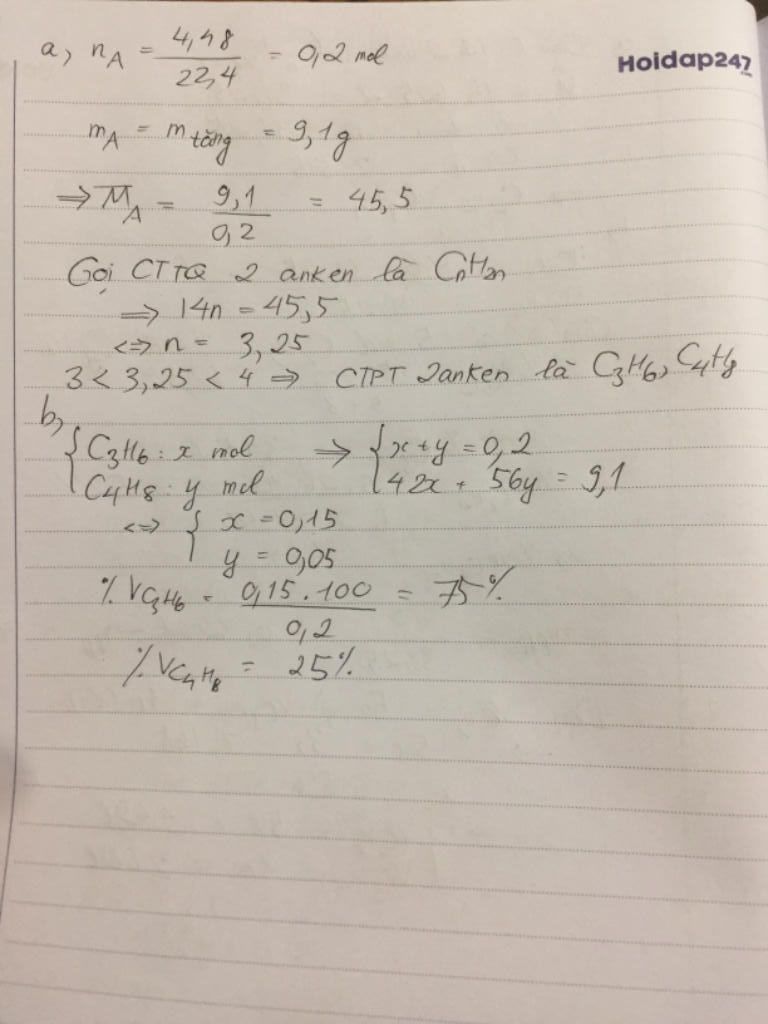 a, nA = 4,48 / 22,4 = 0,2 mol
Hoidap247.com
mA = m tăng = 9,1g
⇒ M̅A = 9,1 / 0,2 = 45,5
Gọi CTTQ 2 anken là CnH2n
⇒ 14n = 45,5
⇔ n = 3,25
3 < 3,25 < 4 ⇒ CTPT 2anken là C3H6, C4H8
b,
{ C3H6 : x mol ⇒ { x + y = 0,2
C4H8 : y mol 42x + 56y = 9,1
⇔ { x = 0,15
y = 0,05
% VC3H6 = 0,15 . 100 / 0,2 = 75%
% VC4H8 = 25%